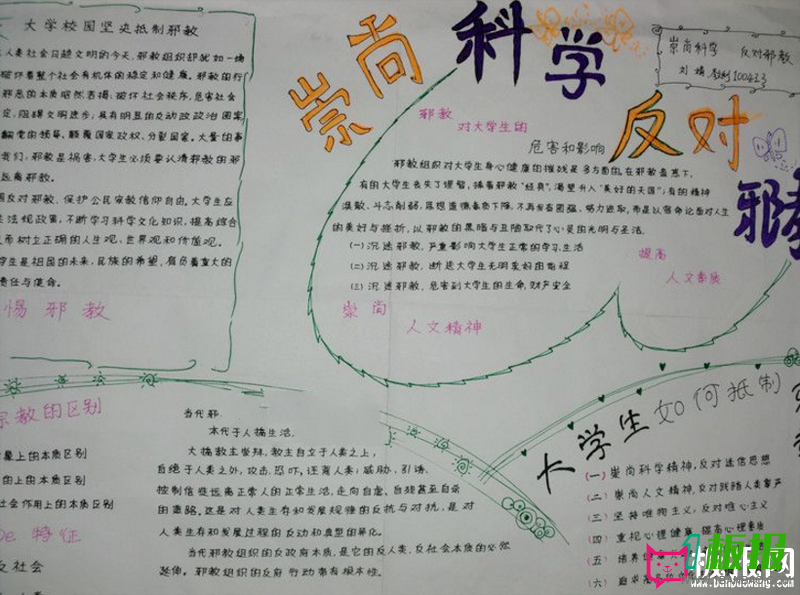 大学校园坚决抵制邪教
人类社会日趋文明的今天,邪教组织却犹如一块
破坏着整个社会有机体的稳定和健康。邪教的行
邪恶的本质昭然若揭:破坏社会秩序,危害社会
定;阻碍文明进步;具有明显的反动政治图案
翻党的领导,颠覆国家政权、分裂国家。大量的事
我们:邪教是祸害,大学生必须要认清邪教的邪
远离邪教。
国反对邪教、保护公民宗教信仰自由。大学生应
法规政策,不断学习科学文化知识,提高综合
树立正确的人生观、世界观和价值观。
学生是祖国的未来,民族的希望,肩负着重大的
责任与使命。
惕邪教
崇尚科学
反对邪教
崇尚科学 反对邪教
刘婧
100413
邪教
对大学生的
危害和影响
邪教组织对大学生身心健康的摧残是多方面的。在邪教蛊惑下,
有的大学生丧失了理智,捧着邪教"经典",渴望升入"美好的天国";有的精神
涣散、斗志削弱,思想道德素质下降,不再发奋图强、努力进取,而是以宿命论面对人生
的美好与挫折,以邪教的黑暗与丑陋取代了心灵的光明与圣洁。
(一)沉迷邪教,严重影响大学生正常的学习、生活
(二)沉迷邪教,断送大学生光明美好的前程
(三)沉迷邪教,危害到大学生的生命、财产安全
提高
人文素质
崇尚
人文精神
宗教的区别
量上的本质区别
的上的本质区别
社会作用上的本质区别
De 特征
反社会
当代邪.
本代于人搞生活,
大搞教主崇拜,教主自立于人类之上,
自绝于人类之外,攻击、恐吓、诬蔑人类;威胁、引诱、
控制信徒远离正常人的正常生活,走向自虐、自残甚至自杀
的道路,这是对人类生存和发展规律的反抗与对抗,是对
人类生存和发展过程的反动和典型的异化。
当代邪教组织的反政府本质,是它的反人类、反社会本质的必然
延伸。邪教组织的反府行动带有根本性。
大学生如何抵制
(一)崇尚科学精神,反对迷信思想
(二)崇尚人文精神,反对践踏人类尊严
(三)坚持唯物主义,反对唯心主义
(四)重视心理健康,提高心理素质
(五
(六
板报网
www.banbaowang.com